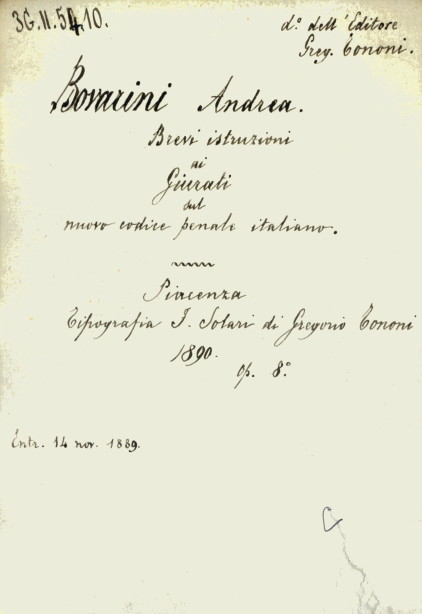 3G.II.54.10.
d.° dell'Editore
Greg. Tononi.
Bovarini Andrea.
Brevi istruzioni
ai
Giurati
sul
nuovo codice penale italiano.
Piacenza
Tipografia F. Solari di Gregorio Tononi
1890.
op. 8.°
Entr. 14 nov. 1889.